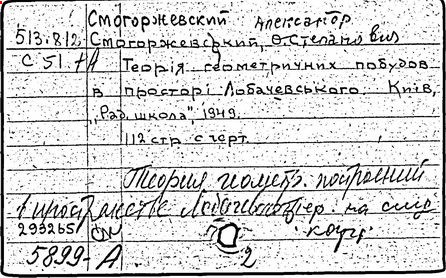 Смогоржевский Александр
513.812 Смогоржевський, О. Степанович
С 51. + А Теорія геометричних побудов
в просторі Лобачевського. Київ,
„Рад. школа", 1949.
112 стр. с черт.
Теория геометр. построений
в пространстве Лобачевского
293265
5899-А 2